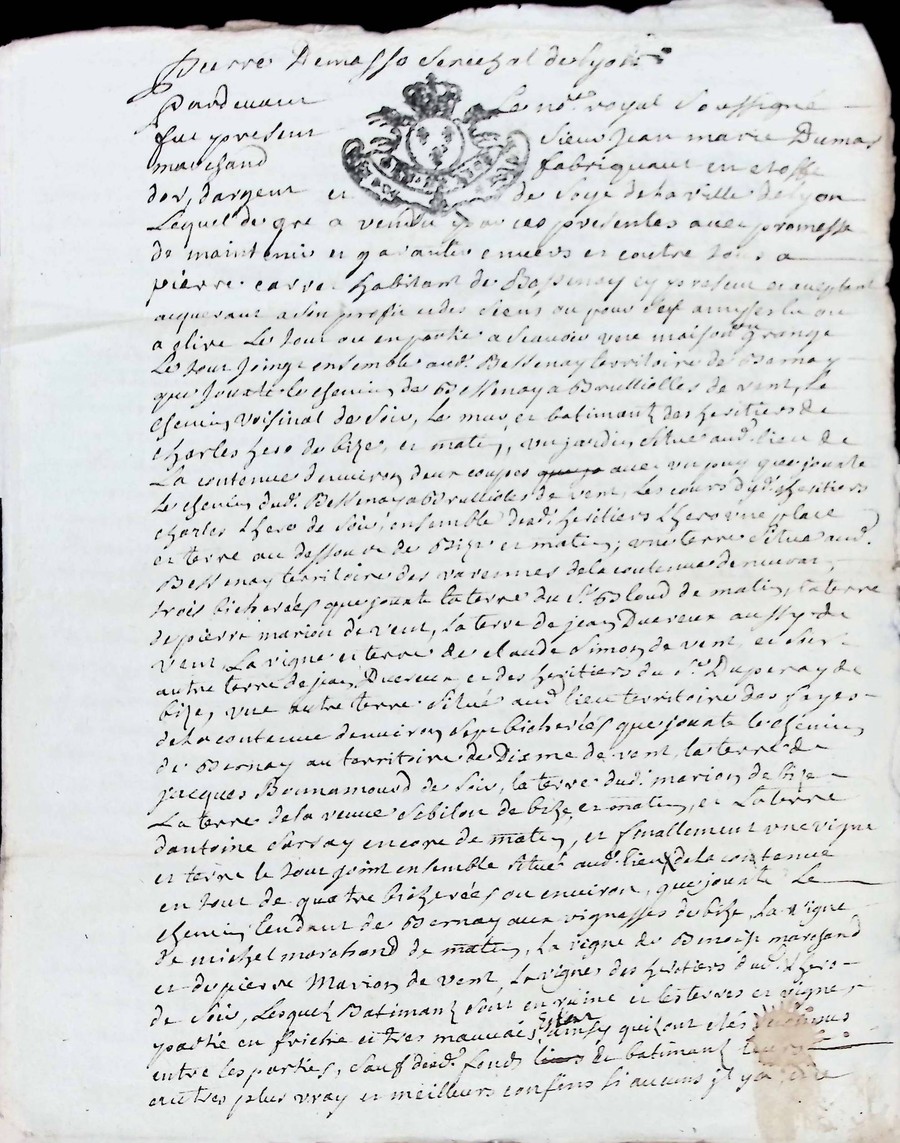 Pierre Demasso Senechal de Lyon
Pardevant Le no.re royal Soussigné
fut present Sieur Jean marie Dumas
marchand fabriquant en etoffe
dor, dargent et de Soye de la ville de Lyon
Lequel de gré a vendu par ces presentes avec promesse
de maintenir et garantir envers et contre tous a
pierre carret habitant de Bessenay cy present et acceptant
acquerant a son profit et des siens ou pour Son amy esleu ou
a elire Le tout ou en partie a Scavoir une maison ou grange
Le tout Joint ensemble aud. Bessenay territoire de Bernay
que Jouxte le chemin de Bessenay a Brullioles de vent, Le
chemin voisinal de Soir, Le mur et batimant des heritiers de
charles hero de bize, et matin, un jardin Situé aud. lieu de
La contenue denviron deux coupes avec un puy que jouxte
Le chemin dud. Bessenay a Brullioles de vent, Les cours dud. heritiers
charles Lhero de Soir, ensemble desd. heritiers Lhero une place
et terre au dessous de Bize et matin; une terre Situé aud.
Bessenay territoire des varennes de la contenue denviron
trois bicherées que jouxte la terre du S.r Bloud de matin, la terre
de pierre marion de vent, La terre de jean Duereux aussy de
vent, La vigne et terre de claude Simon de vent, et Soir
autre terre de jean Duereux et des heritiers du S.r Duperay de
bize, une autre terre Situé aud. lieu territoire des fayes
de la contenue denviron Sept bicherées que jouxte le chemin
de Bernay au territoire de Disme de vent, la terre de
jacques Bonnamourd de Soir, la terre dud. marion de bize
La terre de la veuve Sebilon de bize et matin, et La terre
dantoine Sarray encore de matin, et finallement une vigne
et terre le tout joint ensemble Situé aud. lieu de la contenue
en tout de quatre bicherées ou environ, que jouxte Le
chemin tendant de Bernay aux vignesses de bize, La vigne
de michel marchand de matin, La vigne de Benoist marchand
et de pierre Marion de vent, La vignes des heritiers dud. Lhero
de Soir, Lesquels Batimant Sont en ruine et les terres et vigne
partie en friche et tres mauvais etat ainsy quil ont
entre les parties, Sauf desd. fonds de batimant
autres plus vray et meilleurs confins Si aucuns il y a,